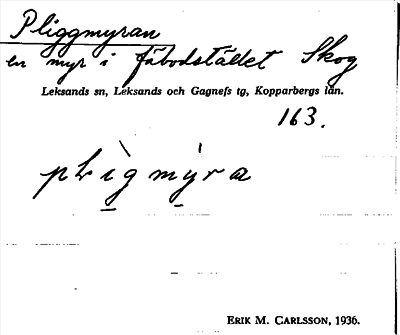 Pliggmyran
en myr i fäbodstället Skog
Leksands sn, Leksands och Gagnefs tg, Kopparbergs län.
163.
plìgmýra
ERIK M. CARLSSON, 1936.